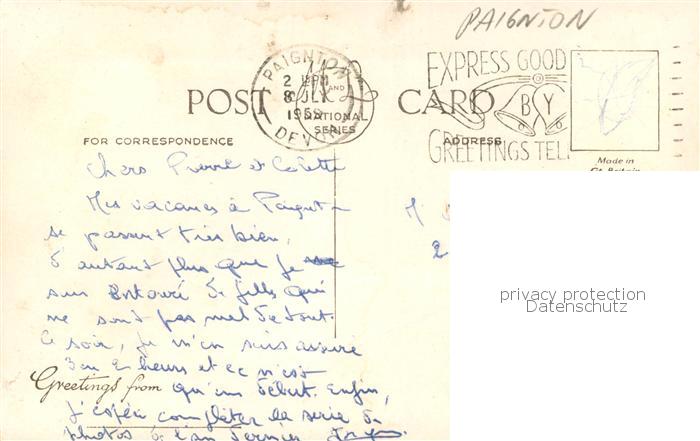 PAIGNTON
PAIGNTON
2 PM
8 JLY
195
DEVON
EXPRESS GOOD
BY
GREETINGS TEL
POST CARD
AND
NATIONAL
SERIES
FOR CORRESPONDENCE
ADDRESS
Made in
Gt. Britain
Chers Pierre et Colette
Mes vacances à Paignton
se passent très bien,
d'autant plus que je
suis entouré de filles qui
ne sont pas mal du tout.
Ce soir, je m'en suis assuré
3 en 2 heures et ce n'est
Greetings from
qu'un début. Enfin,
j'espère compléter la série de
photos de l'an dernier.
M
2
privacy protection
Datenschutz